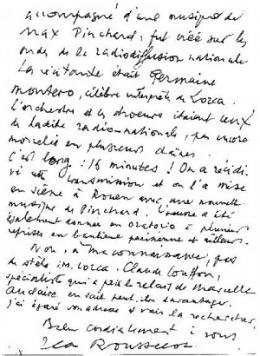 accompagné d'une musique de
Max Pinchard, fut créé sur les
ondes de la radiodiffusion nationale
La récitante était Germaine
Montero, célèbre interprète de Lorca.
L'orchestre et les choeurs étaient ceux
de ladite radio-nationale, pas encore
morcelée en plusieurs chaînes.
C'est long : 16 minutes ! On a récidi-
vé cette transmission et on l'a mise
en scène à Rouen avec une nouvelle
musique de Pinchard. L'oeuvre a été
également donnée en oratorio à plusieurs
reprises en banlieue parisienne et ailleurs.
Non, à ma connaissance, pas
de stèle in. Lorca. Claude Couffon,
spécialiste qui a pris le relais de Marcelle
Auclair en sait peut-être davantage.
J'ai égaré son adresse et vais la rechercher.
Bien cordialement à vous
Jean Rousselot